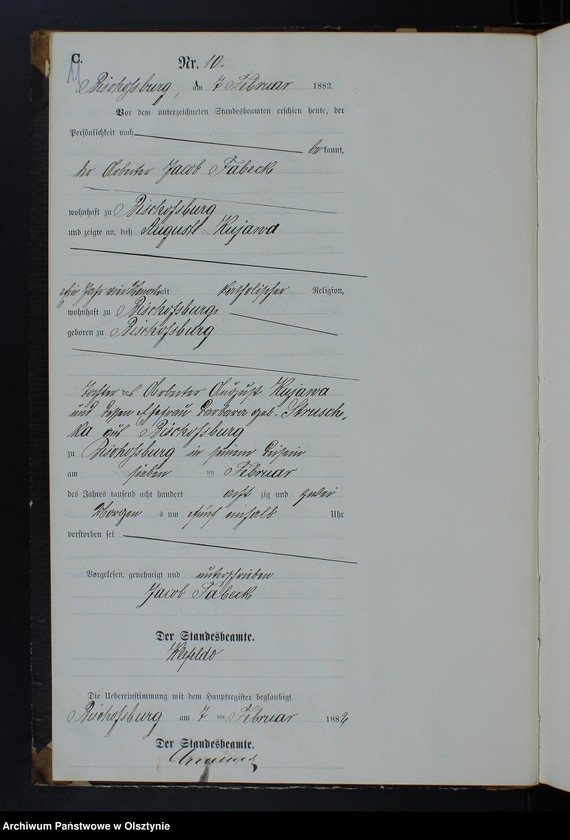 C.
Nr. 10.
Bischofsburg, am 7 Februar 1882.
Vor dem unterzeichneten Standesbeamten erschien heute, der
Persönlichkeit nach
be kannt,
der Arbeiter Jacob Fabeck
wohnhaft zu Bischofsburg
und zeigte an, daß August Kujawa
ein Jahr vier Monat alt katholischer Religion,
wohnhaft zu Bischofsburg
geboren zu Bischofsburg
Tochter des Arbeiter August Kujawa
und dessen Ehefrau Barbara geb. Strusch,
ka aus Bischofsburg
zu Bischofsburg in seinem Beisein
am sieben ten Februar
des Jahres tausend acht hundert acht zig und zwei
Morgens um fünf einhalb Uhr
verstorben sei
Vorgelesen, genehmigt und unterschrieben
Jacob Fabeck
Der Standesbeamte.
Die Uebereinstimmung mit dem Hauptregister beglaubigt.
Bischofsburg am 7 ten Februar 1882
Der Standesbeamte.
Archiwum Państwowe w Olsztynie